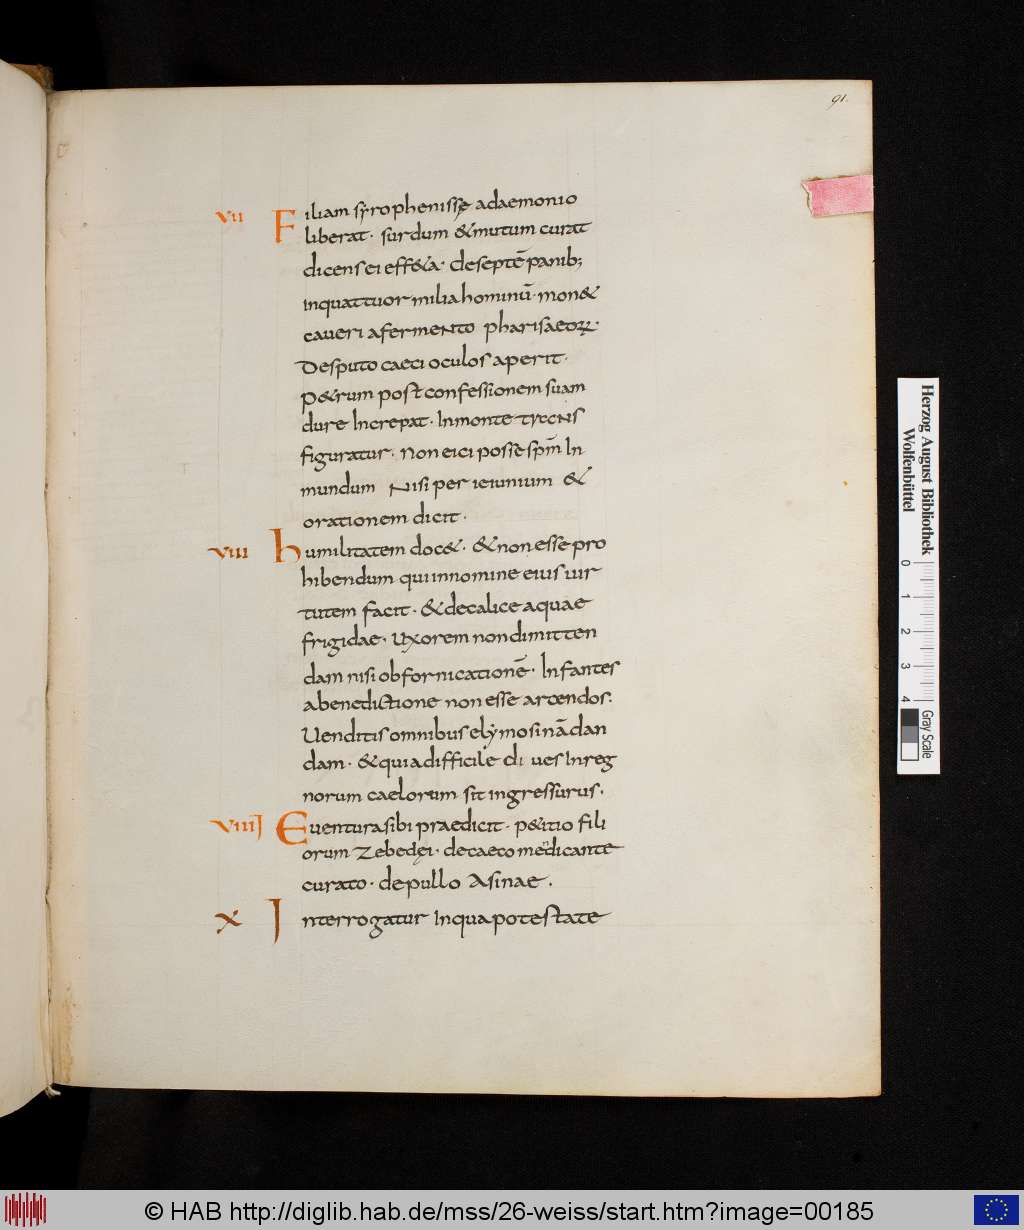 91.
VII Filiam syrophenissę a daemonio
liberat · surdum & mutum curat
dicens ei eff&a · de septē panib;
in quattuor milia hominū · mon&
caueri a fermento pharisaeoꝝ ·
Desputo caeci oculos aperit ·
P&rum post confessionem suam
dure Increpat · In monte trans
figuratur · Non eici posse spm̄ In
mundum Nisi per ieiunium &
orationem dicit ·
VIII humilitatem doc& · & non esse pro
hibendum qui in nomine eius uir
tutem facit · & de calice aquae
frigidae · Uxorem non dimitten
dam nisi ob fornicationē · Infantes
a benedictione non esse arcendos ·
Uenditis omnibus elymosinā dan
dam · & quia difficile di ues In reg
norum caelorum sit ingressurus ·
VIIII Euentura sibi praedicit · p&itio fili
orum Zebedęi · de caeco medicante
curato · de pullo Asinae ·
X Interrogatur In qua potestate
Herzog August Bibliothek
Wolfenbüttel
0 1 2 3 4
Gray Scale
© HAB http://diglib.hab.de/mss/26-weiss/start.htm?image=00185